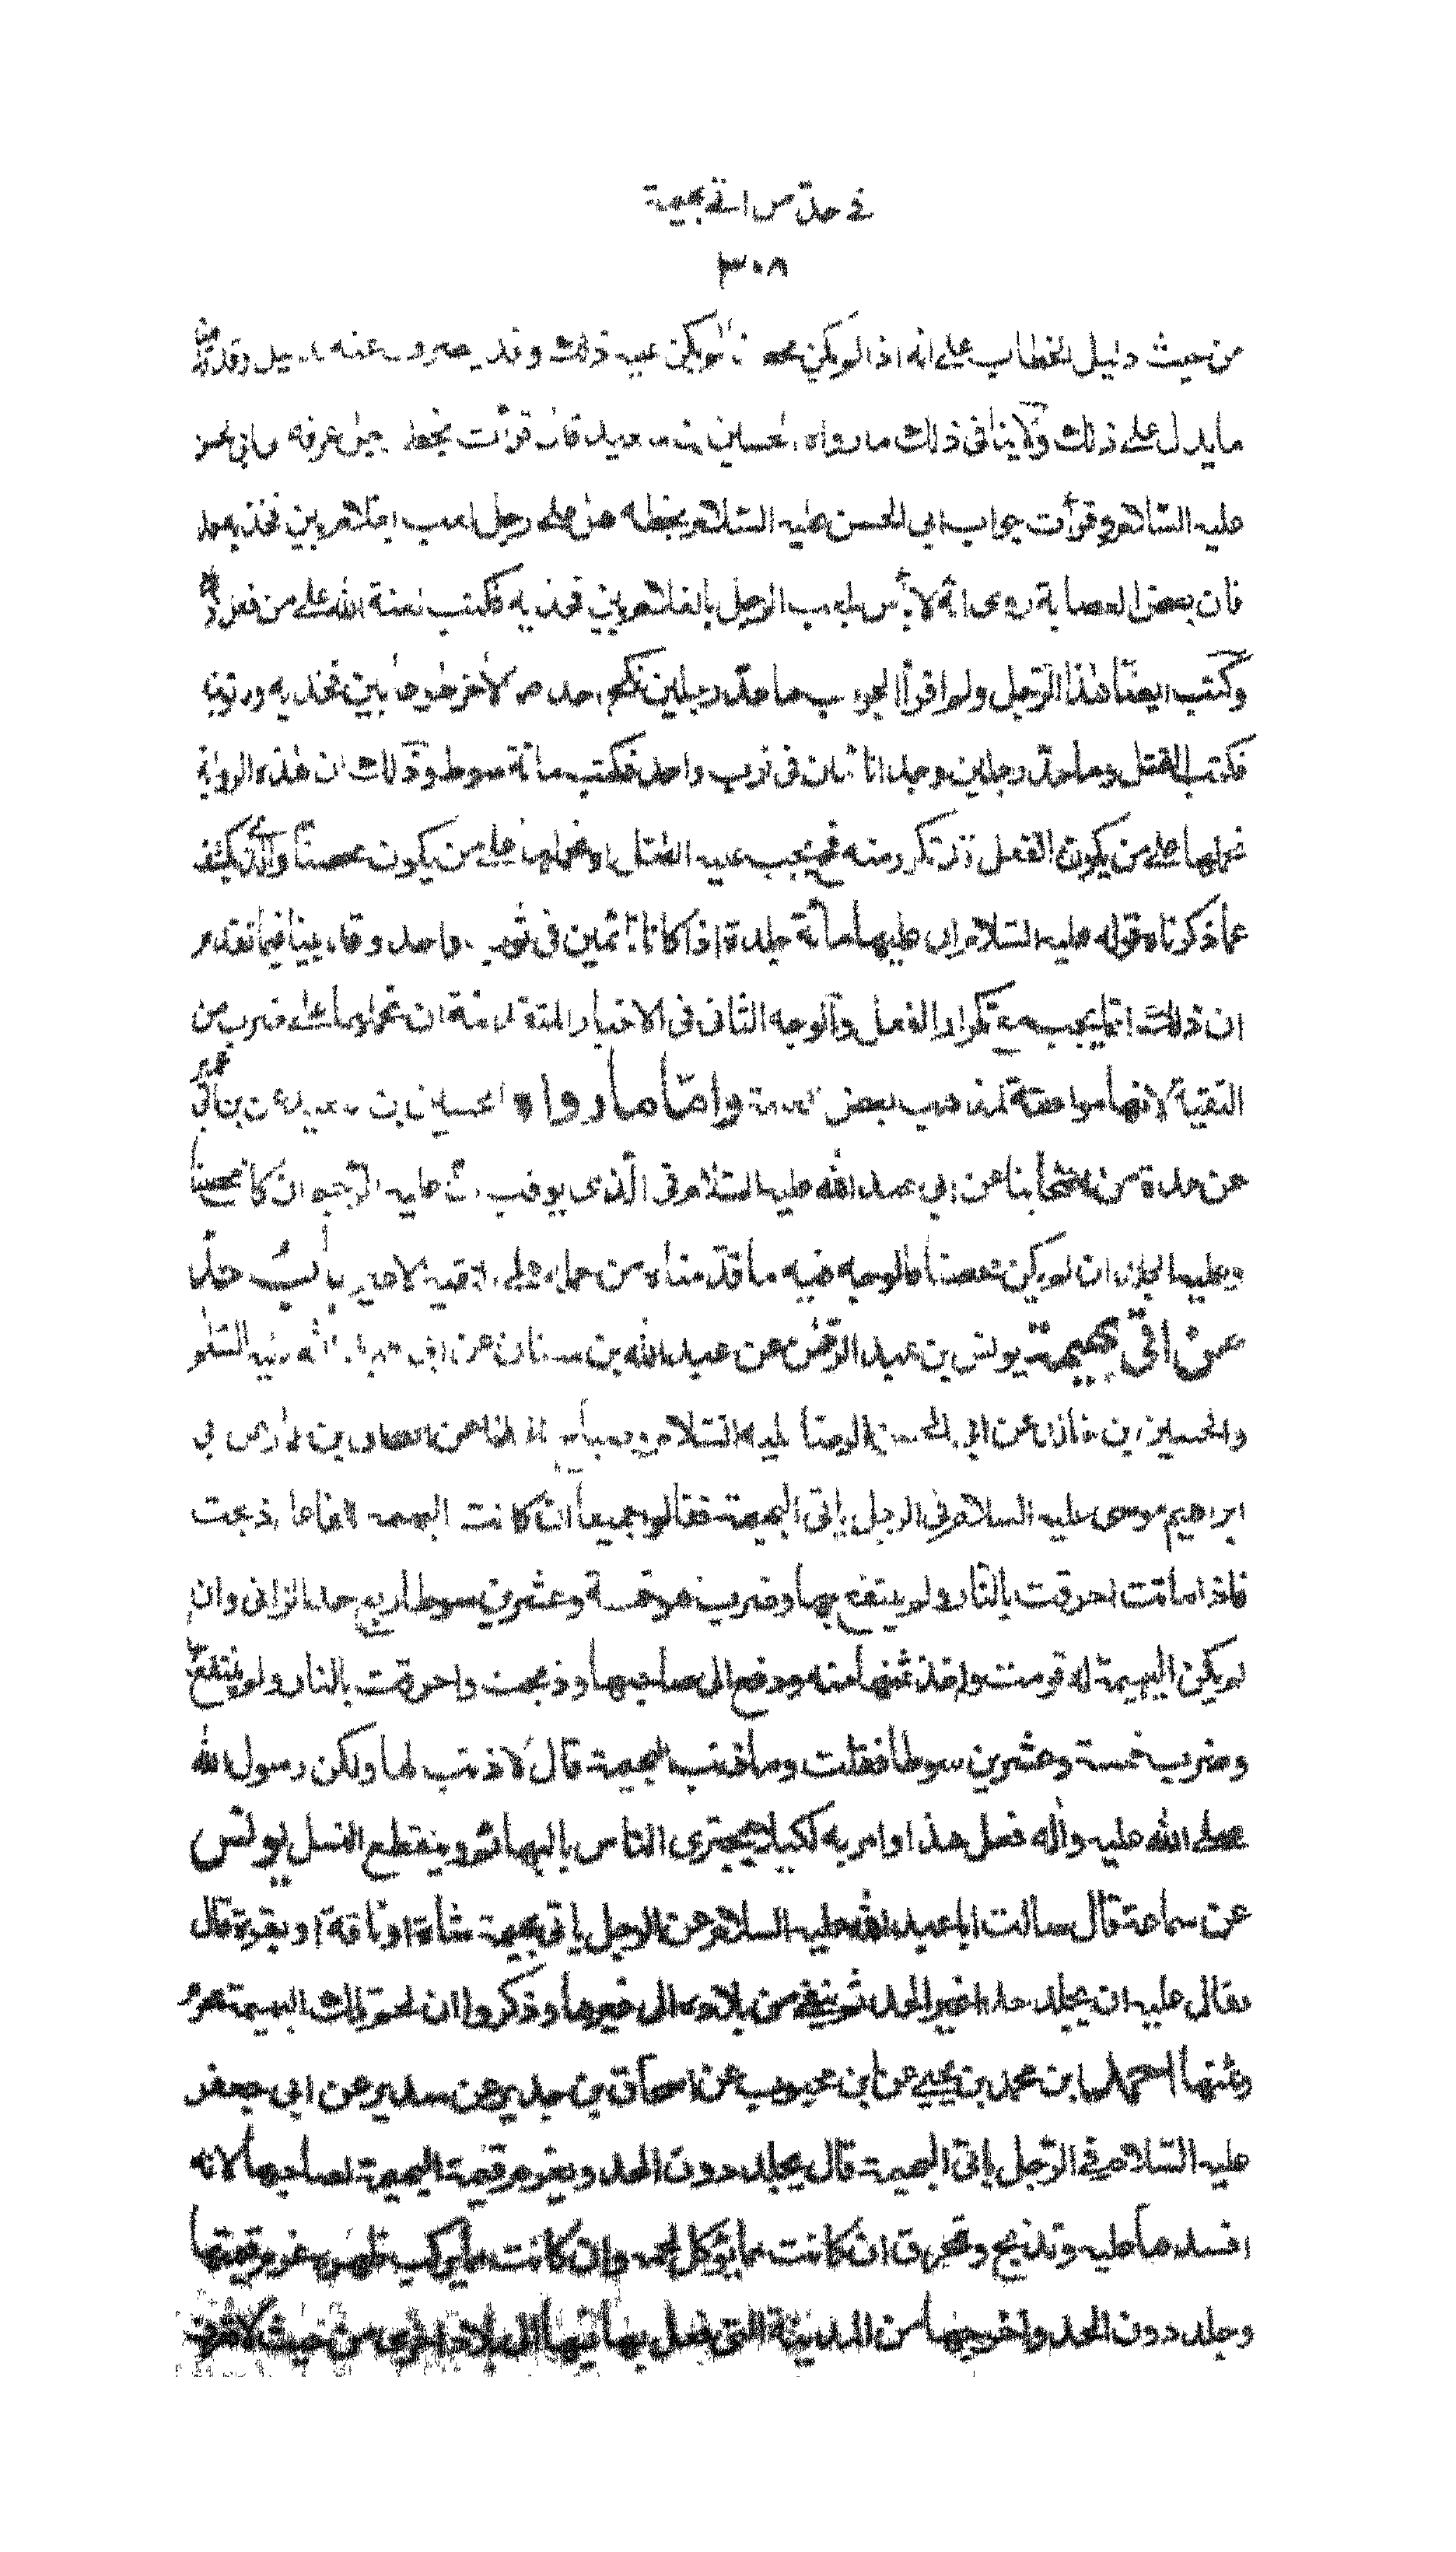 في حدّ من اتى بهيمة
٣٠٨
من حيث دليل الخطاب على انه اذا لم يكن محصنا لم يكن عليه ذلك وقد ينصرف عنه لدليل وقد قدمنا
ما يدل على ذلك ولا ينافى ذلك ما رواه الحسين بن سعيد قال قرأت بخط رجل اعرفه الى ابى الحسن
عليه السلام وقرأت جواب ابى الحسن عليه السلام بخطه هل على رجل لعب بغلام بين فخذيه حد
فان بعض العصابة روى انه لا بأس بلعب الرجل بالغلام بين فخذيه فكتب لعنة الله على من فعل ذلك
وكتب ايضا هذا الرجل ولم ار الجواب ما حدّ رجلين نكح احدهما الآخر طوعا بين فخذيه وما توبته
فكتب القتل وما حدّ رجلين وجدا نائمين فى ثوب واحد فكتب مائة سوط وذلك ان هذه الرواية
نحملها على من يكون الفعل قد تكرر منه فحينئذ يجب عليه القتل او نحملها على من يكون محصنا
عما ذكرناه قوله عليه السلام ان عليهما مائة جلدة اذا كانا نائمين فى ثوب واحد وقد بينا فيما تقدم
ان ذلك انما يجب مع تكرار الفعل والوجه الثانى فى الاخبار المتقدمة ان نحملها على ضرب من
التقية لانها موافقة لمذاهب بعض العامة واما ما رواه الحسين بن سعيد عن ابن ابى عمير
عن عدة من اصحابنا عن ابى عبد الله عليه السلام فى الذى يوقب ان عليه الرجم ان كان محصنا
وعليه الجلد ان لم يكن محصنا فالوجه فيه ما قدمناه من حمله على التقية لا غير باب حدّ
من اتى بهيمة يونس بن عبد الرحمن عن عبد الله بن سنان عن ابى عبد الله عليه السلام
والحسين بن خالد عن ابى الحسن الرضا عليه السلام وصباح الحذاء عن اسحاق بن عمار عن ابى
ابراهيم موسى عليه السلام فى الرجل ياتى البهيمة فقالوا جميعا ان كانت البهيمة للفاعل ذبحت
فاذا ماتت احرقت بالنار ولم ينتفع بها وضرب هو خمسة وعشرين سوطا ربع حد الزانى وان
لم يكن البهيمة له قومت واخذ ثمنها منه ودفع الى صاحبها وذبحت واحرقت بالنار ولم ينتفع بها
وضرب خمسة وعشرين سوطا فقلت وما ذنب البهيمة قال لا ذنب لها ولكن رسول الله
صلى الله عليه واله فعل هذا وامر به لكيلا يجترى الناس بالبهائم وينقطع النسل يونس
عن سماعة قال سالت ابا عبد الله عليه السلام عن الرجل ياتى بهيمة شاة او ناقة او بقرة قال
فقال عليه ان يجلد حدا غير الحد ثم ينفى من بلاده الى غيرها وذكروا ان لحم تلك البهيمة محرم
وثمنها احمد بن محمد بن يحيى عن ابن محبوب عن اسحاق بن جرير عن سدير عن ابى جعفر
عليه السلام فى الرجل ياتى البهيمة قال يجلد دون الحد ويغرم قيمة البهيمة لصاحبها لانه
افسدها عليه وتذبح وتحرق ان كانت مما يؤكل لحمه وان كانت مما يركب ظهره غرم قيمتها
وجلد دون الحد واخرجها من المدينة التى فعل بها فيها الى بلاد اخرى من حيث لا تعرف